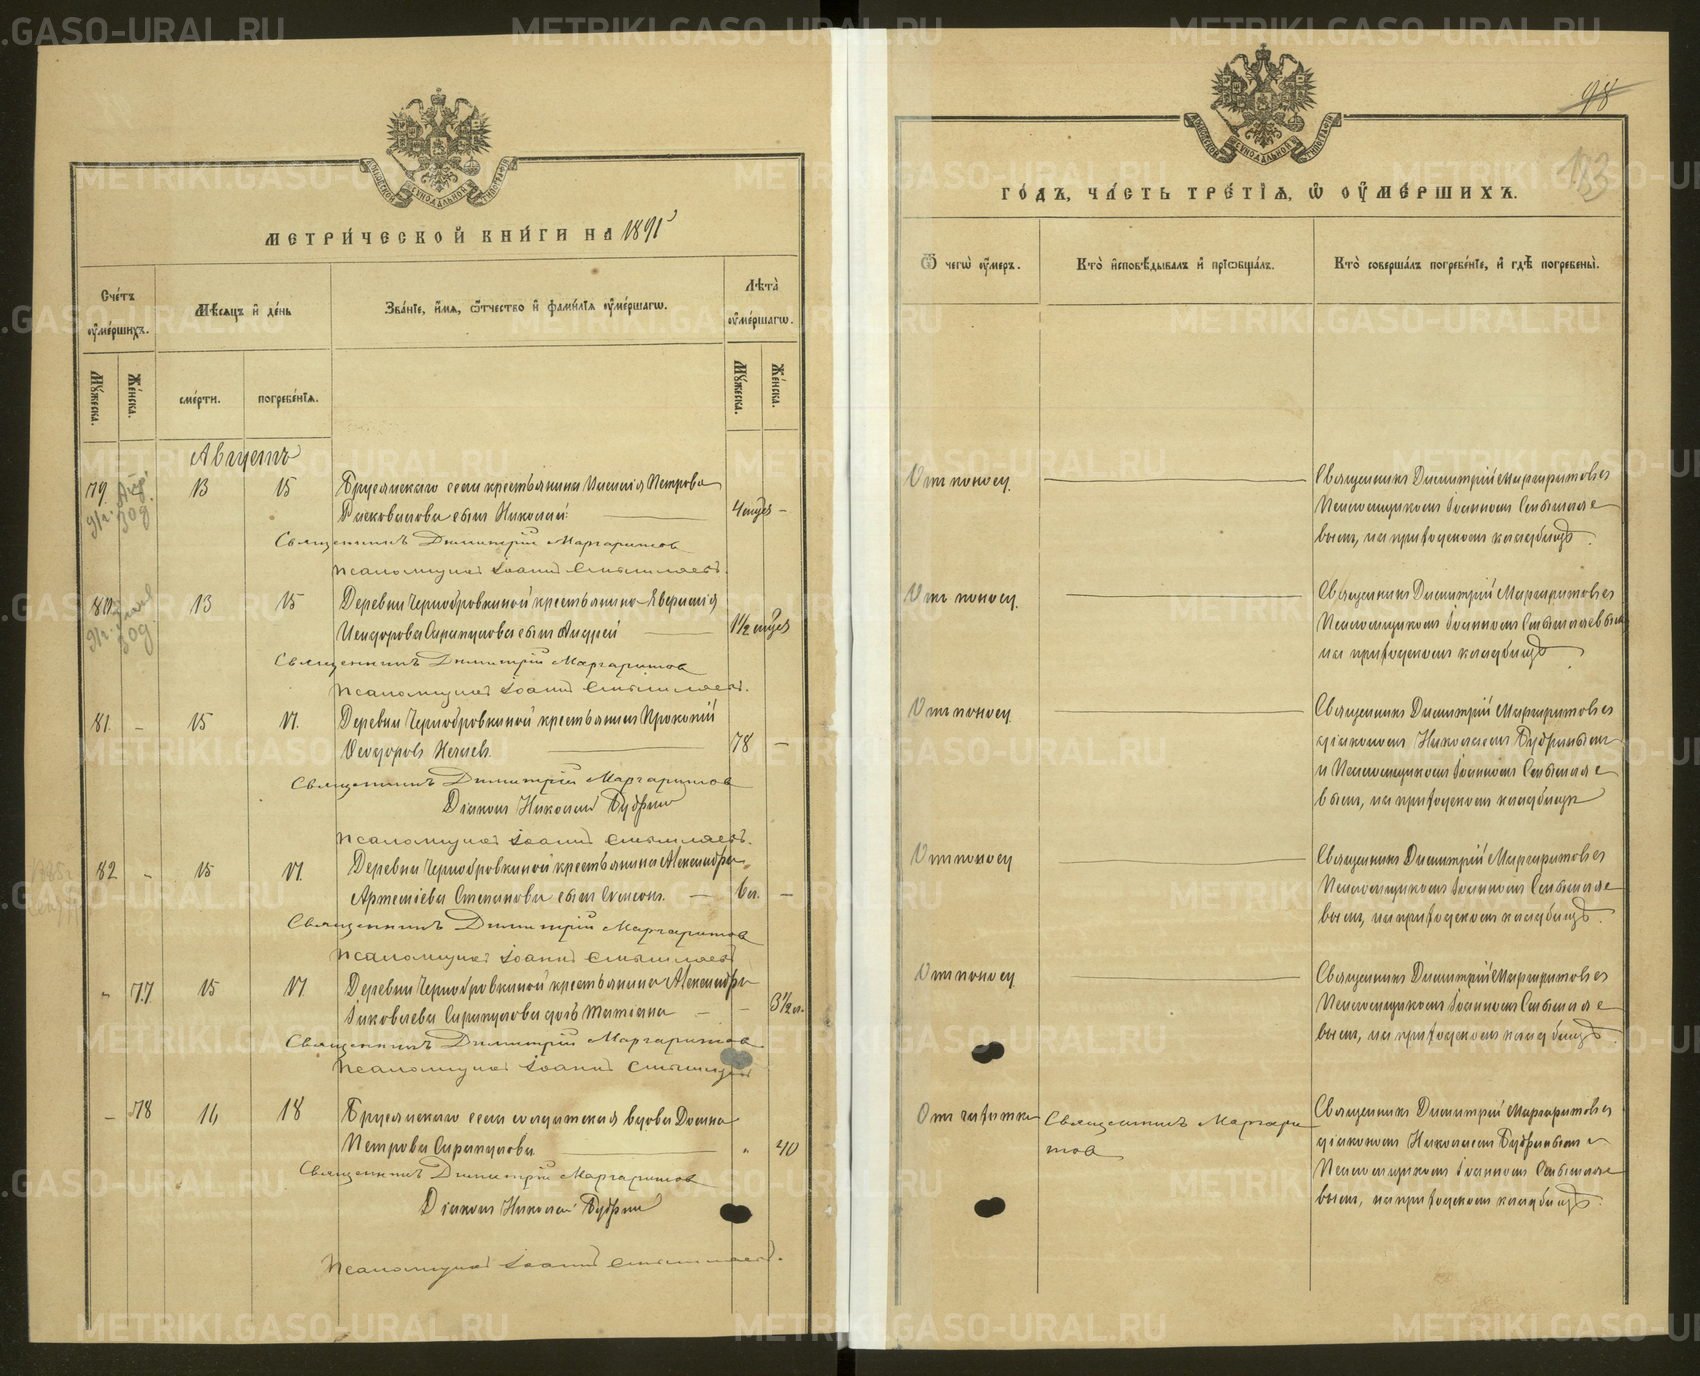 МЕТРИ́ЧЕСКОЙ КНИ́ГИ НА 1891
Сче́тъ ᲂу҆ме́ршихъ.
Мѣ́сяцъ и҆ де́нь
Зва́нїе, и҆́мя, ѻ҆́тчество и҆ фами́лїя ᲂу҆ме́ршагѡ.
Лѣ́та ᲂу҆ме́ршагѡ.
Мꙋ́жеска.
Же́нска.
сме́рти.
погребе́нїя.
Мꙋ́жеска.
Же́нска.
Августъ
79. 13 15 Брусянскаго села крестьянина Петрова
сынъ Николай 4 –
Священникъ Димитрій Маргаритовъ
Псаломщикъ Іоаннъ Смышляевъ.
80. 13 15 Деревни Чернобровкиной крестьянина
сынъ Андрей 1½
Священникъ Димитрій Маргаритовъ
Псаломщикъ Іоаннъ Смышляевъ.
81. – 15 17. Деревни Чернобровкиной крестьянин Прокопій
Ѳеодоровъ 78 –
Священникъ Димитрій Маргаритовъ
Діаконъ Николай Будринъ
Псаломщикъ Іоаннъ Смышляевъ.
82 – 15 17. Деревни Чернобровкиной крестьянина Александра
Артеміева Степанова сынъ 6 л. –
Священникъ Димитрій Маргаритовъ
Псаломщикъ Іоаннъ Смышляевъ
77 15 17. Деревни Чернобровкиной крестьянина Александра
Іаковлева Сарапулова дочь Татіана – 3½ л.
Священникъ Димитрій Маргаритовъ
Псаломщикъ Іоаннъ Смышляевъ
– 78 16 18 Брусянскаго села солдатская вдова Домна
Петрова Сарапулова 40
Священникъ Димитрій Маргаритовъ
Діаконъ Николай Будринъ
Псаломщикъ Іоаннъ Смышляевъ.
98
ГО́ДЪ, ЧА́СТЬ ТРЕ́ТЇѦ, Ѡ҆ ОУ҆МЕ́РШИХЪ.
Ѿ чегѡ̀ ᲂу҆́меръ.
Кто̀ и҆сповѣ́дывалъ и҆ прїѡбща́лъ.
Кто̀ соверша́лъ погребе́нїе, и҆ гдѣ̀ погребены̀.
Отъ поносу. Священникъ Димитрій Маргаритовъ съ
Псаломщикомъ Іоанномъ Смышляе
вымъ, на приходскомъ кладбищѣ.
Отъ поносу. Священникъ Димитрій Маргаритовъ съ
Псаломщикомъ Іоанномъ Смышляевымъ
на приходскомъ кладбищѣ
Отъ поносу Священникъ Димитрій Маргаритовъ съ
діакономъ Николаемъ Будринымъ
и Псаломщикомъ Іоанномъ Смышляе
вымъ, на приходскомъ кладбищѣ
Отъ поносу Священникъ Димитрій Маргаритовъ съ
Псаломщикомъ Іоанномъ Смышляе
вымъ, на приходскомъ кладбищѣ.
Отъ поносу Священникъ Димитрій Маргаритовъ съ
Псаломщикомъ Іоанномъ Смышляе
вымъ, на приходскомъ кладбищѣ.
Отъ чахотки Священникъ Маргари
товъ
Священникъ Димитрій Маргаритовъ съ
діакономъ Николаемъ Будринымъ и
Псаломщикомъ Іоанномъ Смышляе
вымъ, на приходскомъ кладбищѣ.
METRIKI.GASO-URAL.RU